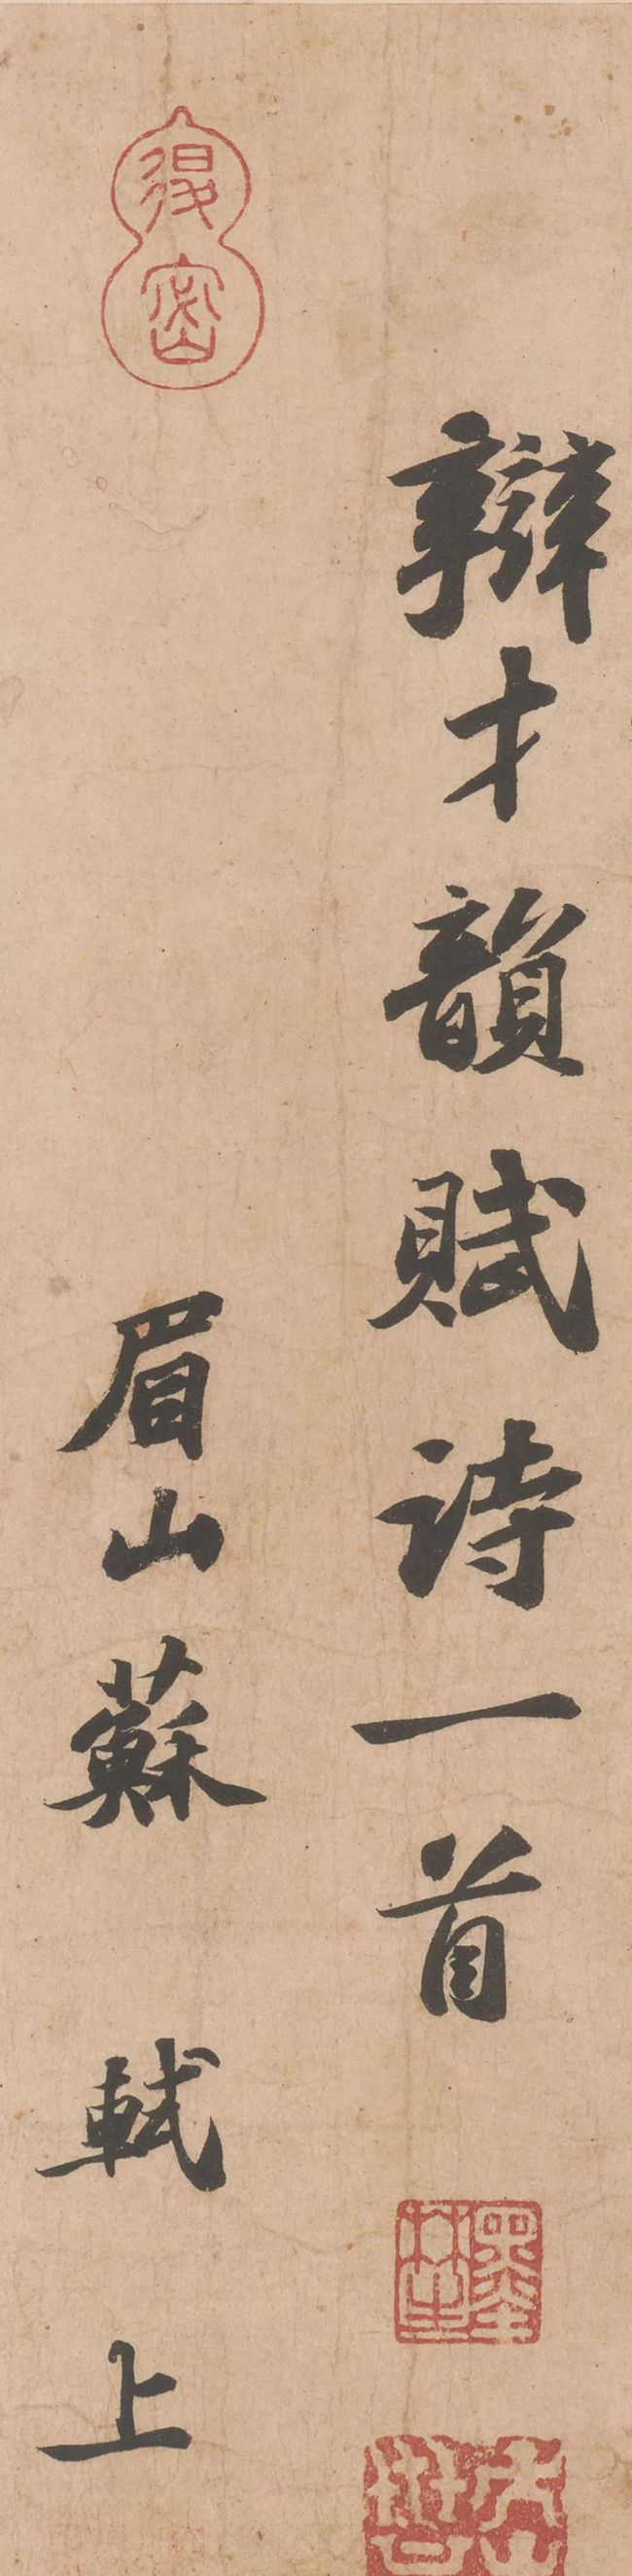 辯才韻賦詩一首
眉山蘇軾上
墨林生